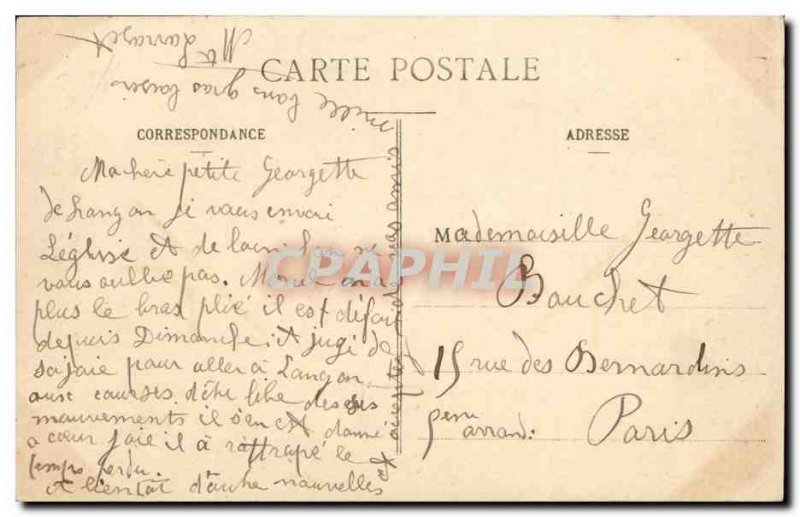 CARTE POSTALE
CORRESPONDANCE
Ma chère petite Georgette
de Langon je vous envoi
L'église et de loin
vous oublie pas. Marcel on a
plus le bras plié il est défait
depuis Dimanche. et jugé de
sa joie pour aller à Langon
aux courses. d'être libe de ses
mouvements il s'en est donné
a cœur joie il à rattrapé le
temps perdu.
A bientôt d'autre nouvelles
et
acceptez mes amis
mille bons gros baisers
Mte Larrazet
ADRESSE
Mademoiselle Georgette
Bouchet
15 rue des Bernardins
5eme arrond:
Paris
CPAPHIL